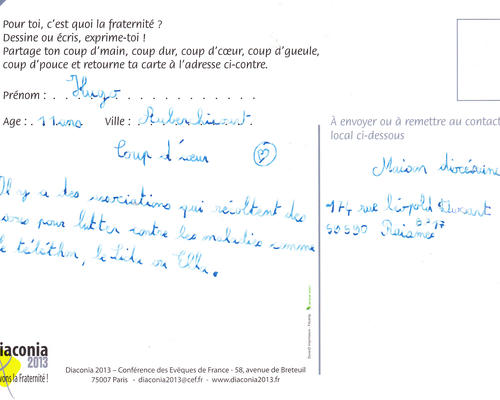 Pour toi, c'est quoi la fraternité ?
Dessine ou écris, exprime-toi !
Partage ton coup d'main, coup dur, coup d'cœur, coup d'gueule,
coup d'pouce et retourne ta carte à l'adresse ci-contre.
Prénom : Hugo
Age : 11 ans Ville : Aubers
Coup d'cœur
Il y a des associations qui récoltent des
pour lutter contre les maladies comme
le téléthon, le Sida ou
À envoyer ou à remettre au contact
local ci-dessous
Maison diocésaine
174 rue léopold
59590 Raismes
Diaconia
2013
vons la Fraternité !
Diaconia 2013 – Conférence des Evêques de France - 58, avenue de Breteuil
75007 Paris - diaconia2013@cef.fr - www.diaconia2013.fr